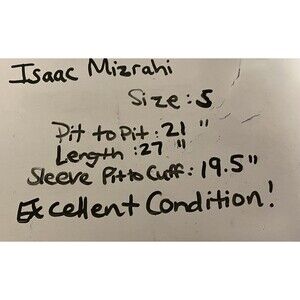 Isaac Mizrahi
Size: S
Pit to Pit: 21"
Length: 27"
Sleeve Pit to Cuff: 19.5"
Excellent Condition!